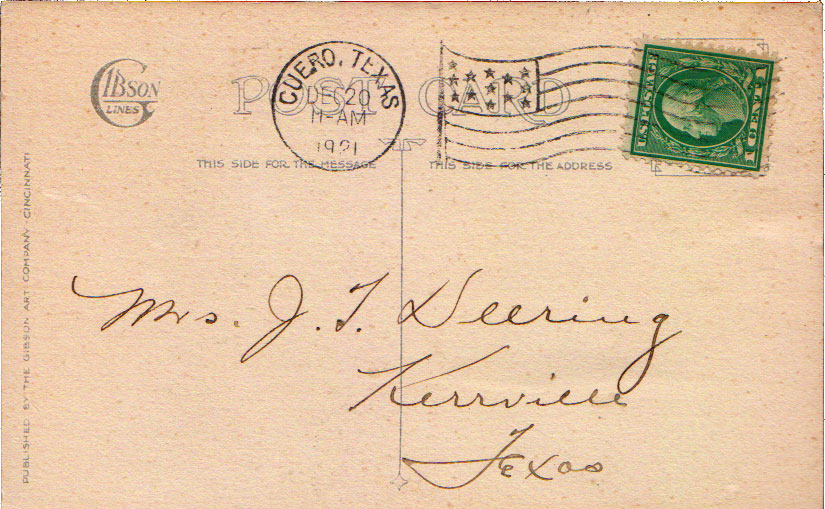 GIBSON
LINES
POST CARD
CUERO, TEXAS
DEC 20
11-AM
1921
U.S. POSTAGE
1 CENT 1
THIS SIDE FOR THE MESSAGE
THIS SIDE FOR THE ADDRESS
PUBLISHED BY THE GIBSON ART COMPANY - CINCINNATI
Mrs. J. T. Deering
Kerrville
Texas